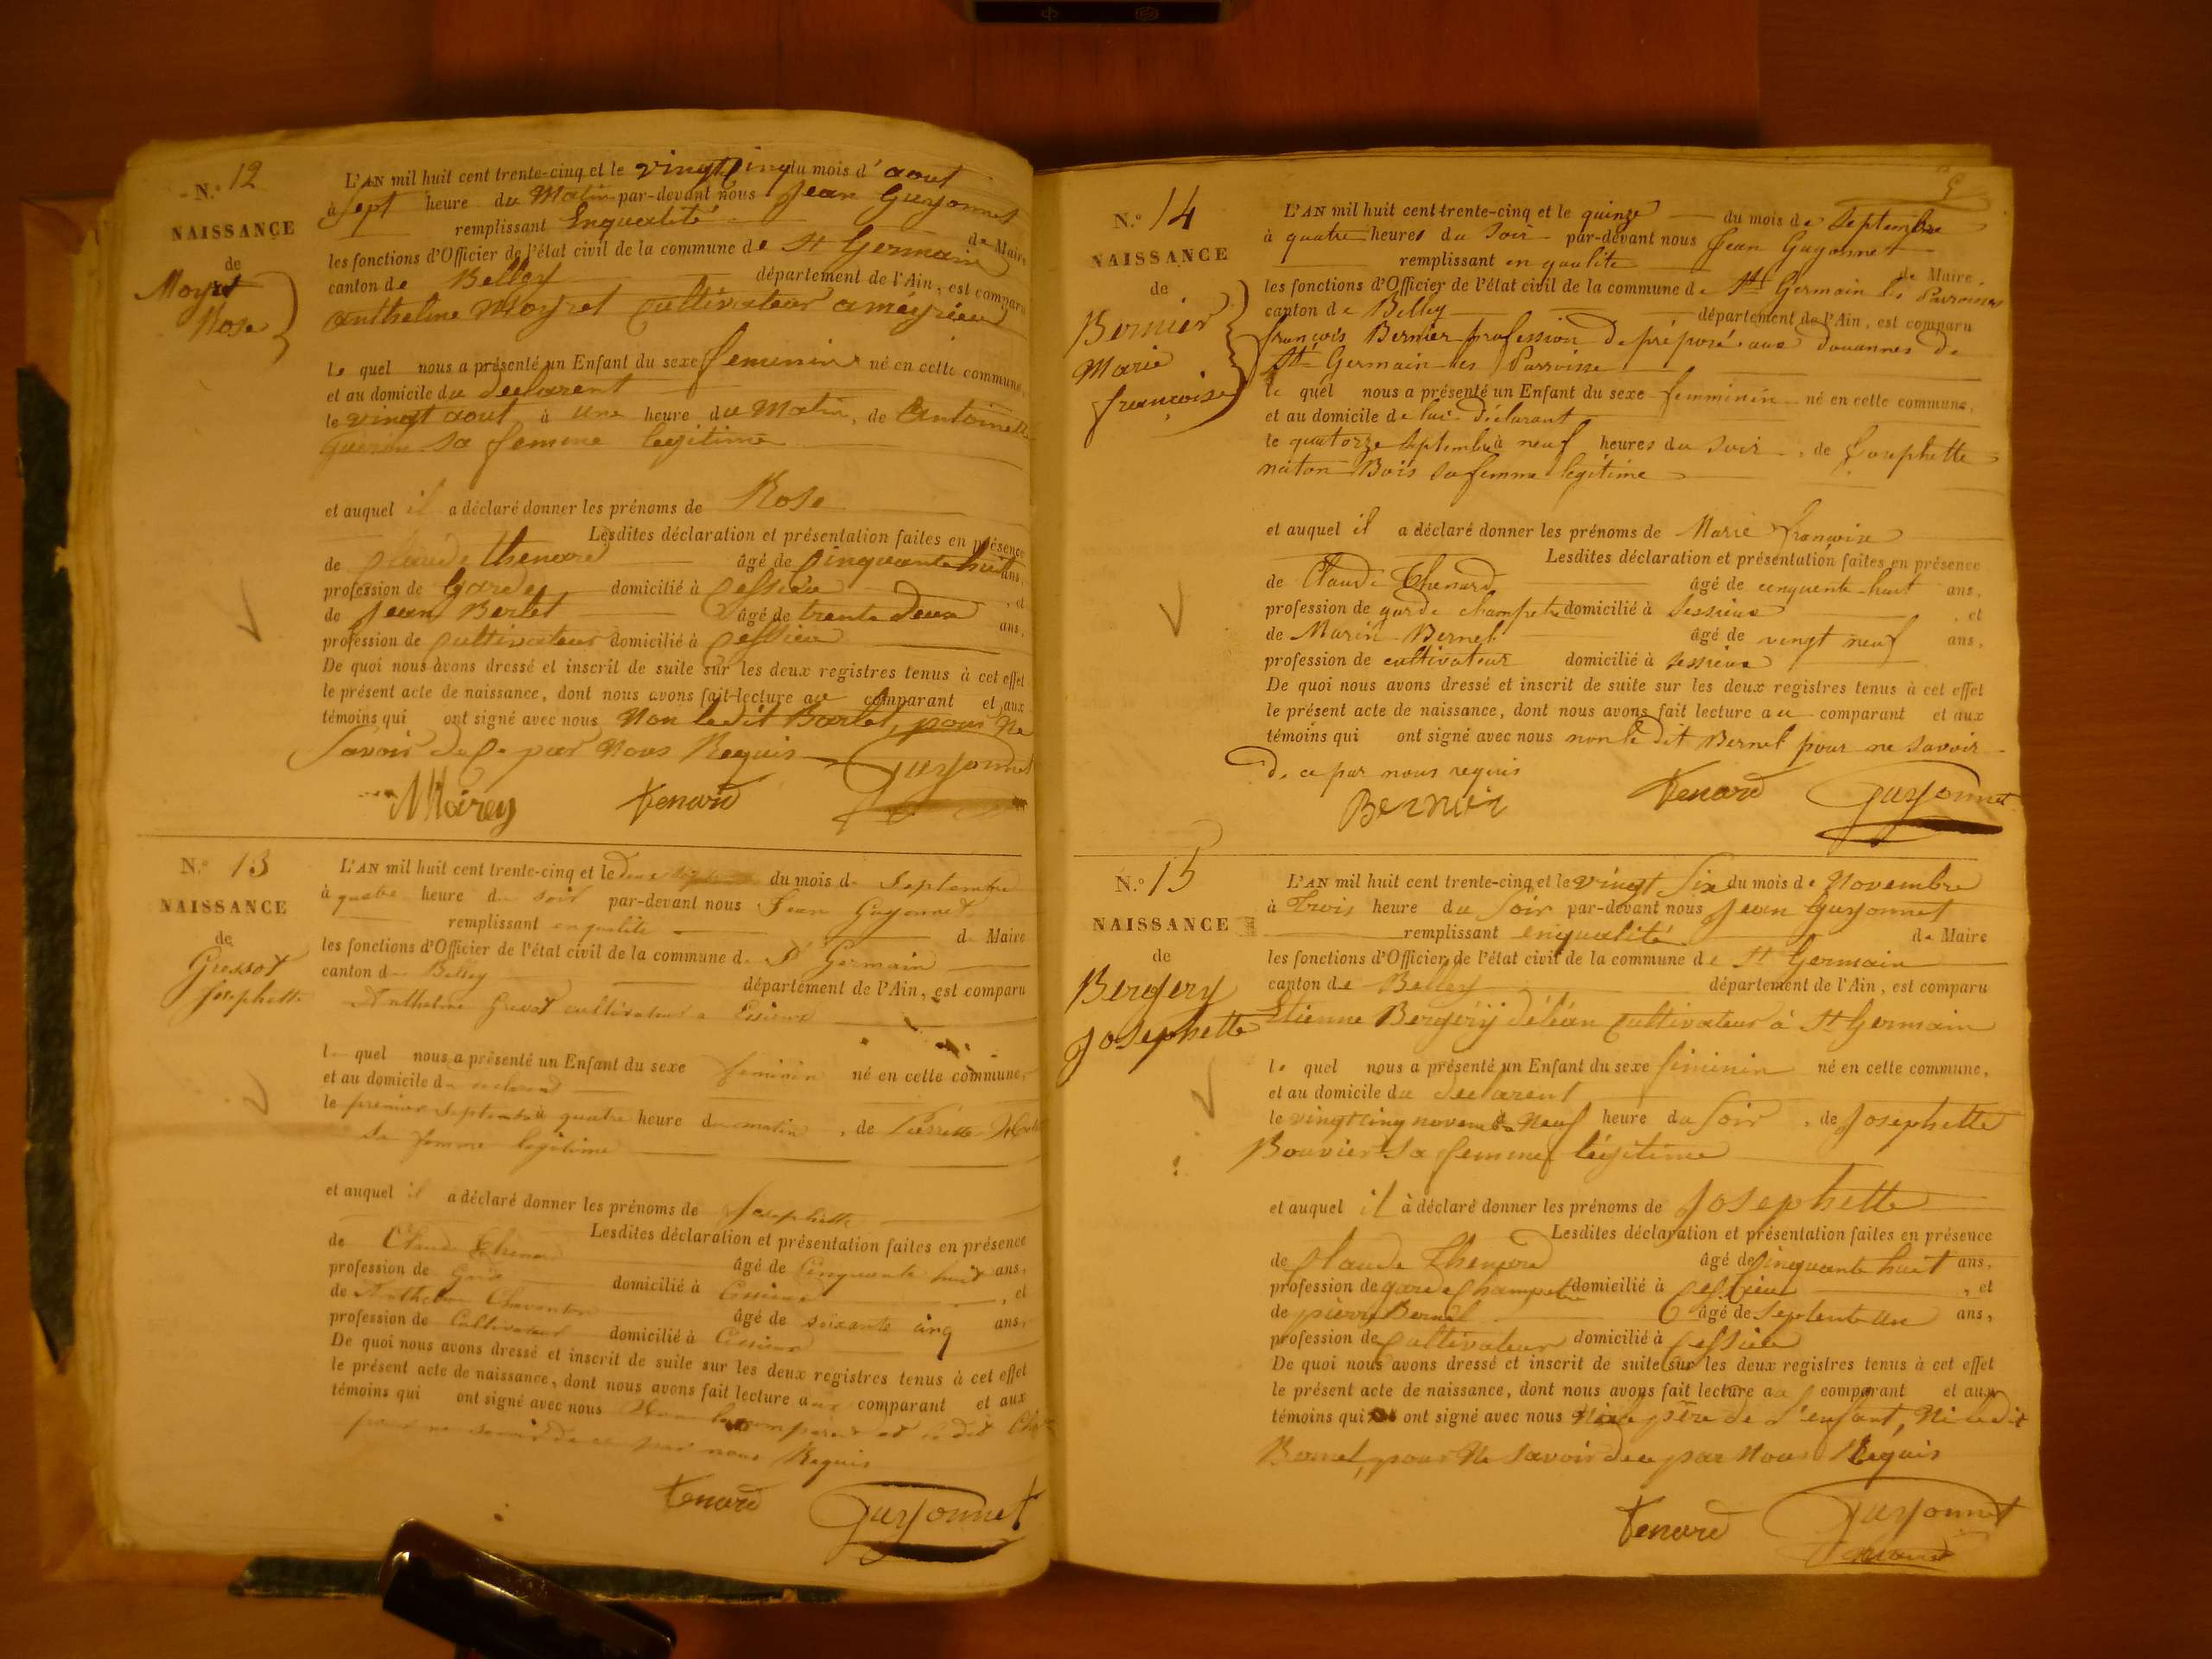 N.° 12
NAISSANCE
de
Moyret
Rose
L'AN mil huit cent trente-cinq et le vingt cinq du mois d' aout
à sept heure du Matin par-devant nous Jean Guyonnet
remplissant Enqualité de Maire
les fonctions d'Officier de l'état civil de la commune de St Germain
canton de Belley département de l'Ain, est comparu
antheline Moyret cultivateur a meyrieu
Le quel nous a présenté un Enfant du sexe femenin né en cette commune,
et au domicile du declarent
le vingt aout à une heure du Matin, de Antoinette
guerin sa femme legitime
et auquel il a déclaré donner les prénoms de Rose
Lesdites déclaration et présentation faites en présence
de claude thenard âgé de cinquante huit ans,
profession de garde domicilié à cessieu, et
de Jean Berlet âgé de trente deux ans,
profession de cultivateur domicilié à cessieu
De quoi nous avons dressé et inscrit de suite sur les deux registres tenus à cet effet
le présent acte de naissance, dont nous avons fait lecture au comparant et aux
témoins qui ont signé avec nous Non ledit Barlet, pour Ne
savoir de ce par Nous Requis Guyonnet
Moirey tenard
N.° 13
NAISSANCE
de
Gressot
Josephette
L'AN mil huit cent trente-cinq et le deux du mois de Septembre
à quatre heure du soir par-devant nous Jean Guyonnet
remplissant en qualite de Maire
les fonctions d'Officier de l'état civil de la commune de St Germain
canton de Belley département de l'Ain, est comparu
Antheline cultivateur a
le quel nous a présenté un Enfant du sexe feminin né en cette commune,
et au domicile du
le premier septembre à quatre heure du matin, de Pierrette
sa femme legitime
et auquel il a déclaré donner les prénoms de Josephette
Lesdites déclaration et présentation faites en présence
de Claude Thenard âgé de Cinquante huit ans,
profession de domicilié à Cessieux, et
de Anthelme âgé de soixante cinq ans,
profession de Cultivateur domicilié à Cessieux
De quoi nous avons dressé et inscrit de suite sur les deux registres tenus à cet effet
le présent acte de naissance, dont nous avons fait lecture aux comparant et aux
témoins qui ont signé avec nous Non le comparent et le dit
pour ne savoir de ce par nous Requis
tenard Guyonnet
9
N.° 14
NAISSANCE
de
Bernier
Marie
francoise
L'AN mil huit cent trente-cinq et le quinze du mois de Septembre
à quatre heures du Soir par-devant nous Jean Guyonnet
remplissant en qualité de Maire
les fonctions d'Officier de l'état civil de la commune de St Germain les Parroisses
canton de Belley département de l'Ain, est comparu
françois Bernier profession de préposé aux douannes de
St Germain les Parroisse
le quel nous a présenté un Enfant du sexe femminin né en cette commune,
et au domicile de lui déclarant
le quatorze septembre à neuf heures du soir, de Josephette
naton Bois sa femme legitime
et auquel il a déclaré donner les prénoms de Marie francoise
Lesdites déclaration et présentation faites en présence
de Claude Thenard âgé de cinquente huit ans,
profession de garde champetre domicilié à Sessieux, et
de Marin Bernet âgé de vingt neuf ans,
profession de cultivateur domicilié à sessieux
De quoi nous avons dressé et inscrit de suite sur les deux registres tenus à cet effet
le présent acte de naissance, dont nous avons fait lecture au comparant et aux
témoins qui ont signé avec nous non le dit Bernet pour ne savoir
de ce par nous requis
Bernier tenard Guyonnet
N.° 15
NAISSANCE
de
Bergery
Josephette
L'AN mil huit cent trente-cinq et le vingt Six du mois de Novembre
à trois heure du Soir par-devant nous Jean Guyonnet
remplissant enqualité de Maire
les fonctions d'Officier de l'état civil de la commune de St Germain
canton de Belley département de l'Ain, est comparu
Etienne Bergéry déléan cultivateur à St Germain
le quel nous a présenté un Enfant du sexe féminin né en cette commune,
et au domicile du declarent
le vingt cinq novembre Neuf heure du Soir, de Josephette
Bouvier sa femme légitime
et auquel il à déclaré donner les prénoms de Josephette
Lesdites déclaration et présentation faites en présence
de claude Thenard âgé de cinquante huit ans,
profession de garde champetre domicilié à Cessieux, et
de pierre Bernet âgé de septente un ans,
profession de cultivateur domicilié à cessieu
De quoi nous avons dressé et inscrit de suite sur les deux registres tenus à cet effet
le présent acte de naissance, dont nous avons fait lecture au comparant et aux
témoins qui ont signé avec nous Ni le père de l'enfant, Ni le dit
Bernet, pour Ne Savoir de ce par Nous Réquis
tenard Guyonnet